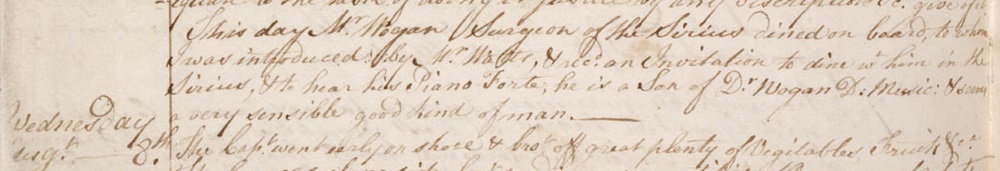 equal to the task of doing it justice by any Description &c. give of it
This day Mr. Wogan Surgeon of the Sirius dined on board, to whom
I was introduced by Mr. Watts, & recd. an Invitation to dine wt. him in the
Sirius, & to hear his Piano Forte, he is a Son of Dr. Wogan D: Music: & seems
a very sensible good kind of man.
Wednesday
Augt. 8.th The Capt. went early on shore & bro.t off great plenty of Vegitables Fruit &c.a